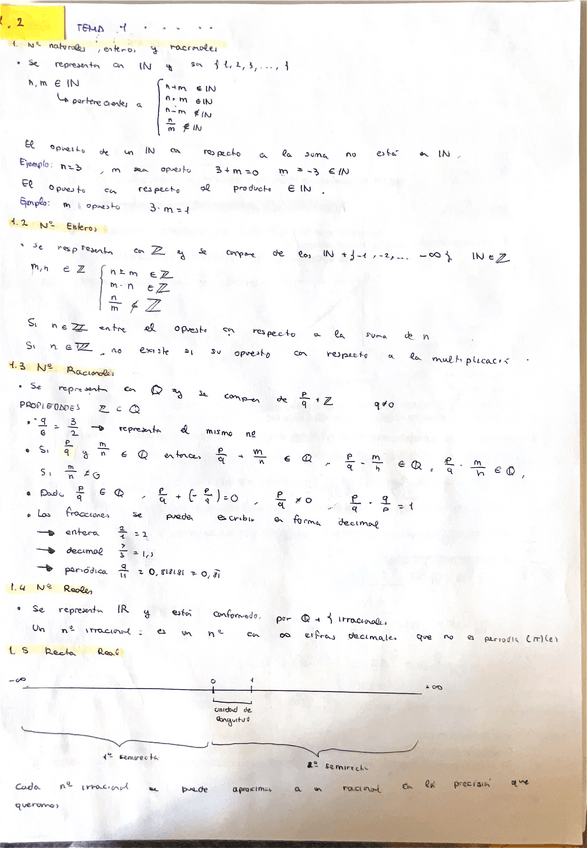 1.2
TEMA 1
1. Nº naturales, enteros y racionales
• Se representa con IN y son {1, 2, 3, ..., }
n, m ∈ IN
↳ pertenecientes a
n+m ∈ IN
n·m ∈ IN
n-m ∉ IN
n/m ∉ IN
El opuesto de un IN con respecto a la suma no está en IN.
Ejemplo: n=3, m sea opuesto 3+m=0 m=-3 ∉ IN
El opuesto con respecto al producto ∈ IN.
Ejemplo: m: opuesto 3·m=1
1.2 Nº Enteros
• Se representa con ℤ y se compone de los IN + {-1, -2, ... -∞} IN ∈ ℤ
m, n ∈ ℤ
n±m ∈ ℤ
m·n ∈ ℤ
n/m ∉ ℤ
Si n ∈ ℤ entre el opuesto con respecto a la suma de n
Si n ∈ ℤ, no existe si su opuesto con respecto a la multiplicación.
1.3 Nº Racionales
• Se representa con Q y se componen de p/q + ℤ q≠0
PROPIEDADES ℤ ⊂ Q
• 9/6 = 3/2 → representa el mismo nº
• Si p/q y m/n ∈ Q entonces p/q + m/n ∈ Q, p/q - m/n ∈ Q, p/q · m/n ∈ Q,
Si m/n ≠ 0
• Dado p/q ∈ Q, p/q + (-p/q) = 0, p/q ≠ 0, p/q · q/p = 1
• Las fracciones se pueden escribir en forma decimal
→ entera 2/1 = 2
→ decimal
→ periódica 9/11 = 0,818181 = 0,81
1.4 Nº Reales
• Se representa IR y está conformado por Q + { irracionales
Un nº irracional: es un nº con ∞ cifras decimales que no es periodia (π)(e)
1.5 Recta Real
-∞ 0 1 +∞
unidad de longuitud
1º semirecta
2º semirecta
Cada nº irracional se puede aproximar a un racional con la precisión que
queramos